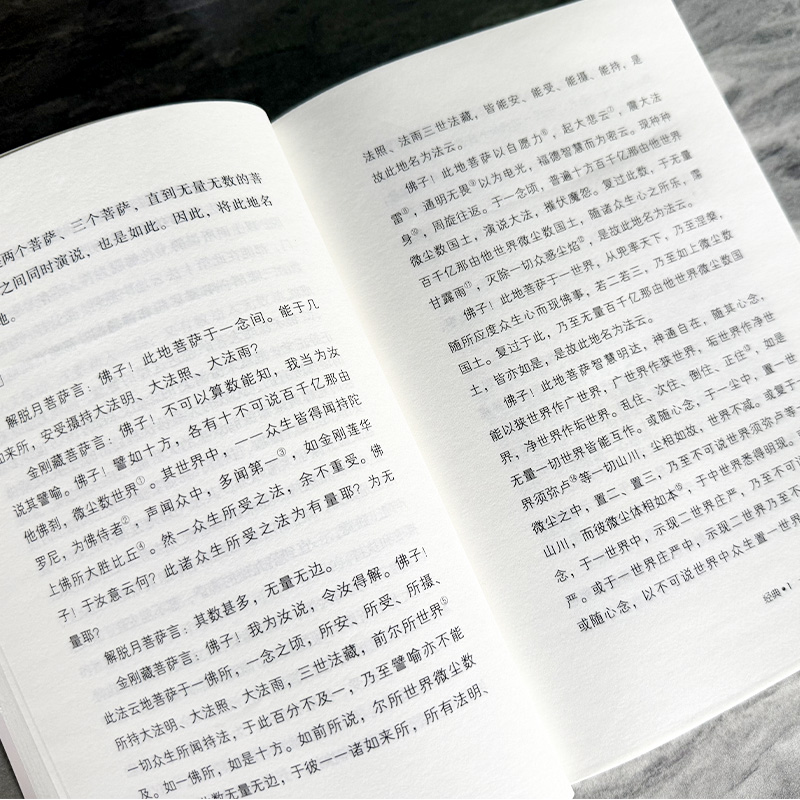 两个菩萨、三个菩萨，直到无量无数的菩
之间同时演说，也是如此。因此，将此地名
地。
解脱月菩萨言：佛子！此地菩萨于一念间。能于几
如来所，安受摄持大法明、大法照、大法雨？
金刚藏菩萨言：佛子！不可以算数能知，我当为汝
说其譬喻。佛子！譬如十方，各有十不可说百千亿那由
他佛刹，微尘数世界①。其世界中，一一众生皆得闻持陀
罗尼，为佛侍者②，声闻众中，多闻第一③，如金刚莲华
上佛所大胜比丘④。然一众生所受之法，余不重受。佛
子！于汝意云何？此诸众生所受之法为有量耶？为无
量耶？
解脱月菩萨言：其数甚多，无量无边。
金刚藏菩萨言：佛子！我为汝说，令汝得解。佛子！
此法云地菩萨于一佛所，一念之顷，所安、所受、所摄、
所持大法明、大法照、大法雨，三世法藏，前尔所世界⑤
一切众生所闻持法，于此百分不及一，乃至譬喻亦不能
及。如一佛所，如是十方。如前所说，尔所世界微尘数
数无量无边，于彼一一诸如来所，所有法明、
法照、法雨三世法藏，皆能安、能受、能摄、能持，是
故此地名为法云。
佛子！此地菩萨以自愿力⑥，起大悲云⑦，震大法
雷⑧，通明无畏⑨以为电光，福德智慧而为密云。现种种
身⑩，周旋往返。于一念顷，普遍十方百千亿那由他世界
微尘数国土，演说大法，摧伏魔怨。复过此数，于无量
百千亿那由他世界微尘数国土，随诸众生心之所乐，霔
甘露雨⑪，灭除一切众惑尘焰⑫，是故此地名为法云。
佛子！此地菩萨于一世界，从兜率天下，乃至涅槃，
随所应度众生心而现佛事，若二若三，乃至如上微尘数
国土。复过于此，乃至无量百千亿那由他世界微尘数国
土，皆亦如是，是故此地名为法云。
佛子！此地菩萨智慧明达，神通自在，随其心念，
能以狭世界作广世界，广世界作狭世界，垢世界作净世
界，净世界作垢世界。乱住、次住、倒住、正住⑬，如是
无量一切世界皆能互作。或随心念，于一尘中，置一世
界须弥卢⑭等一切山川，尘相如故，世界不减。或复于一
微尘之中，置二、置三，乃至不可说世界须弥卢等
山川，而彼微尘体相如本⑮，于中世界悉得明现。
念，于一世界中，示现二世界庄严，乃至不可
严。或于一世界庄严中，示现二世界乃至不
或随心念，以不可说世界中众生置一世界
经典●1